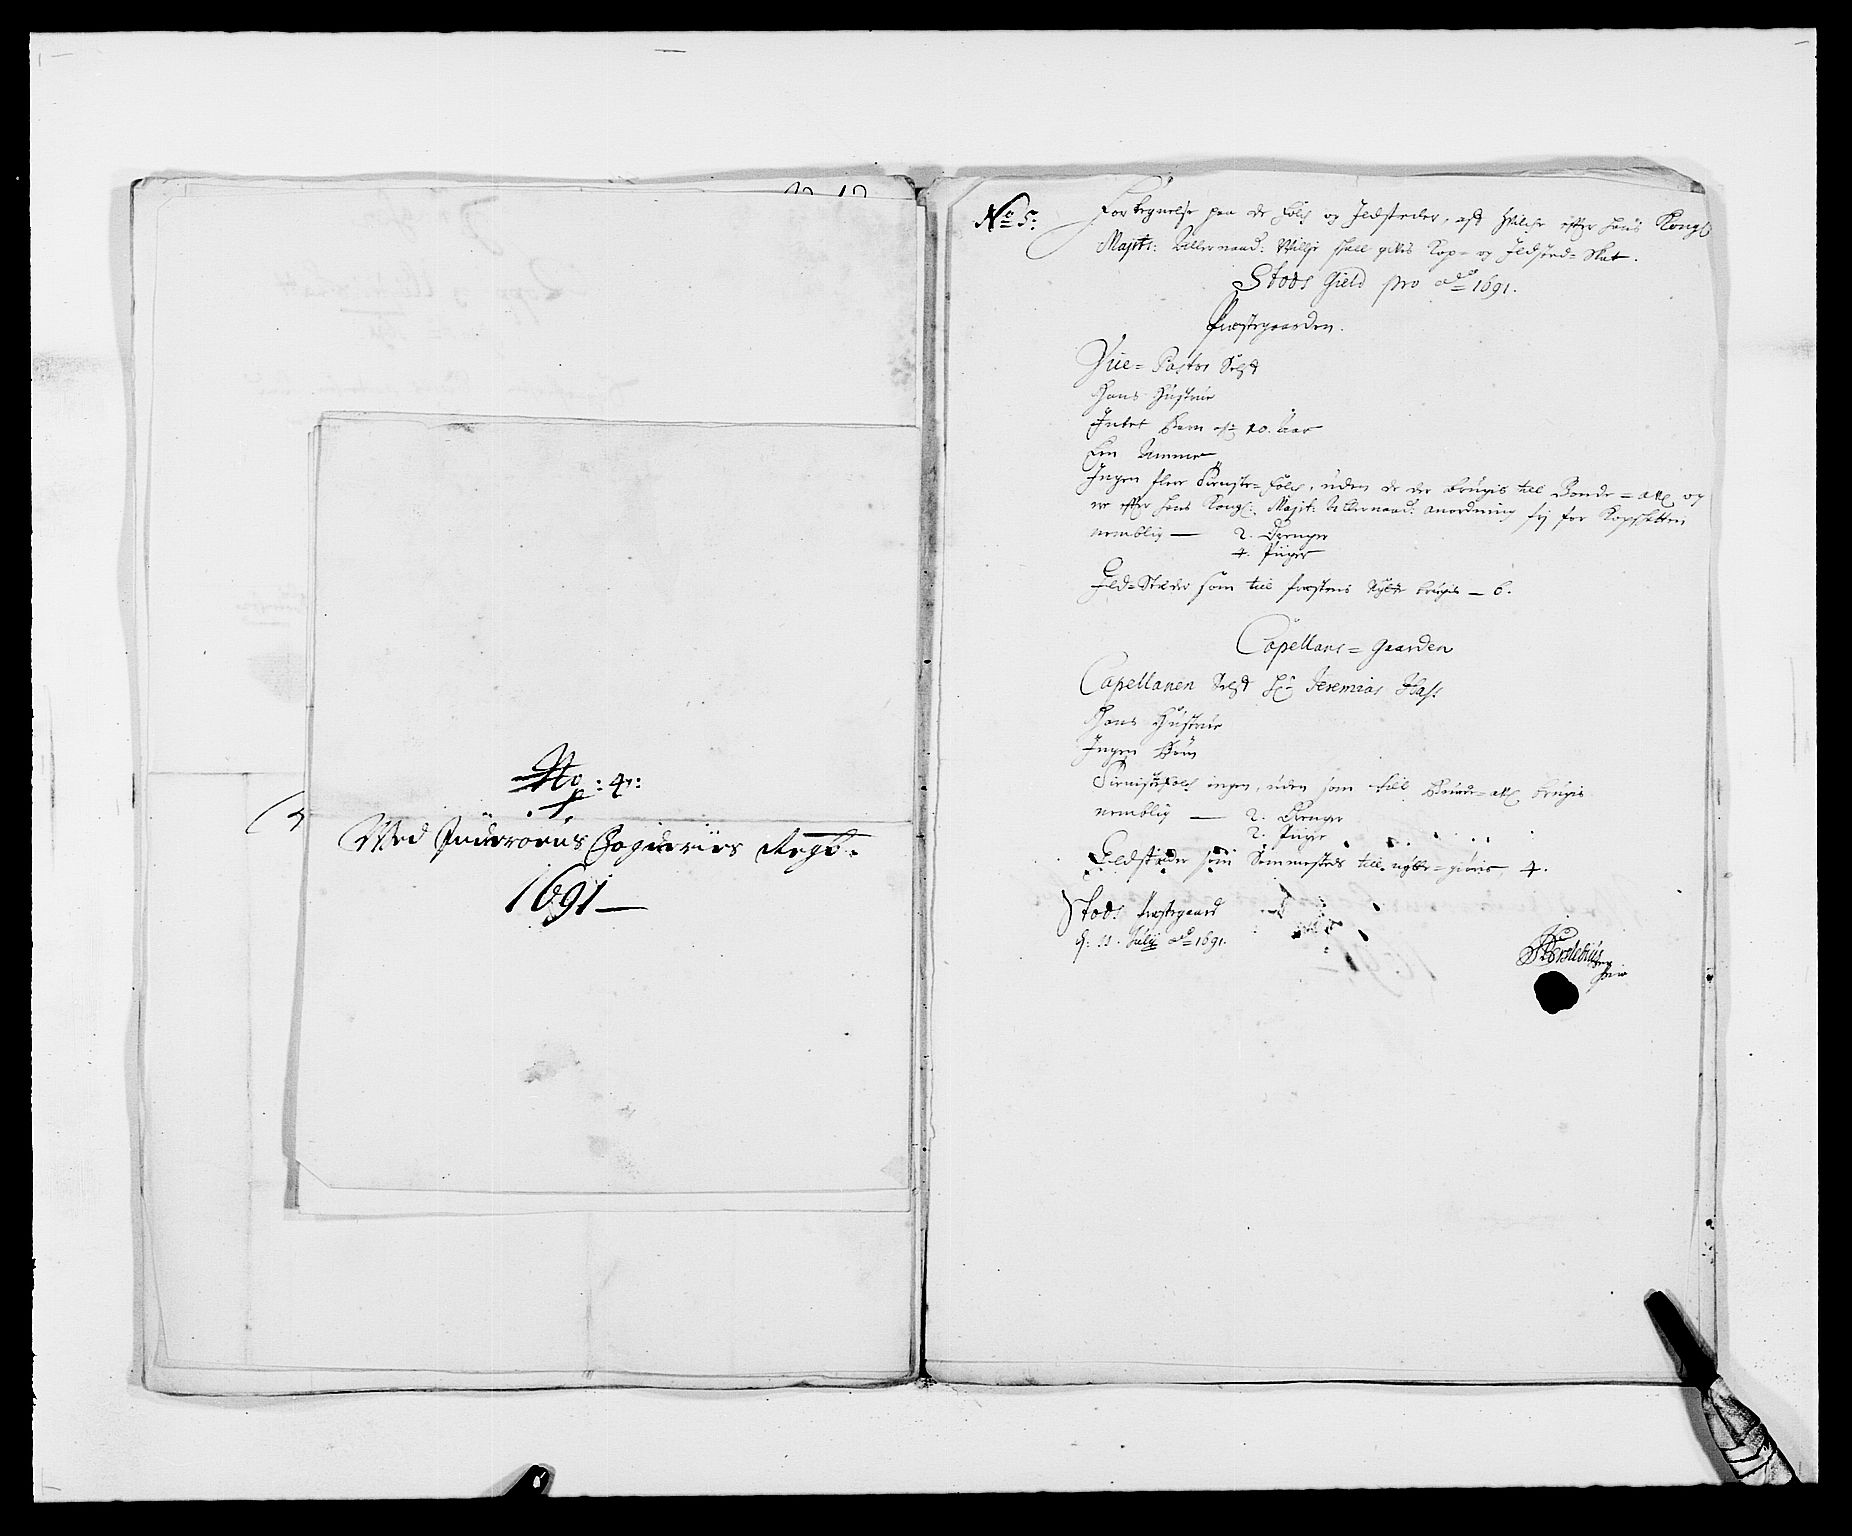 No: 4:
Med Inderøens Fogderies Regb.
1691
No 5:
Fortegnelse paa de Folch og Ildsteder, aff Hvilche efter Hans Kongl
Majtts: Allernaad: Willie skall gifvis Kop- og Ildsted-Skat.
Stods Gield pro Ao 1691.
Præstegaarden.
Vice-Pastor Self
Hans Hustrue
Intet Barn af 10. Aar
Een Amme
Ingen fleer Tieniste-Folch, uden de der brugis till Bonde- og
er efter Hans Kongl. Majtt: Allernaad: anordning frj for Kopskatten
nemblig — 2. Drenge
4. Piiger
Ild-Stæder som till Præstens brugis — 6.
Capellans-Gaarden
Capellanen Self Hr Jeremias Hass
Hans Hustrue
Ingen Børn
Tienistefolch ingen, uden som till brugis
nemblig — 2. Drenge
2. Piiger
Ildstæder som till 4.
Stods Præstegaard
d: 11. Julij Ao 1691.